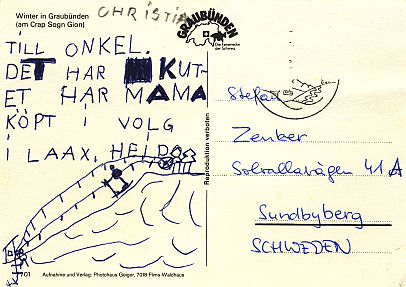 Winter in Graubünden
(am Crap Sogn Gion)
GRAUBÜNDEN
Die Ferienecke
der Schweiz
TILL ONKEL.
DET HAR KUT-
ET HAR MAMA
KÖPT I VOLG
I LAAX, HEJDO
Reproduktion verboten
Stefan
Zenker
Solvallavägen 41 A
Sundbyberg
SCHWEDEN
Aufnahme und Verlag: Photohaus Geiger, 7018 Flims Waldhaus